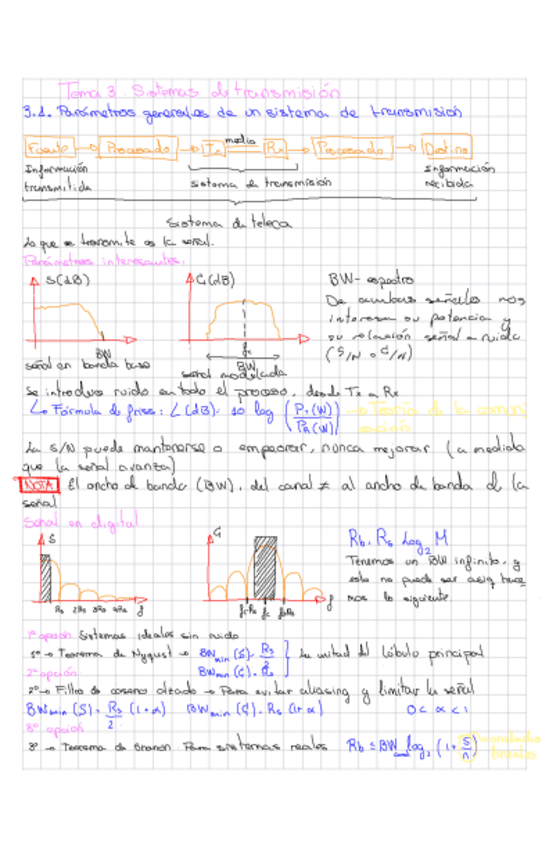 Tema 3. Sistemas de transmisión
3.1. Parámetros generales de un sistema de transmisión
Fuente → Procesado → Tx medio Rx → Procesado → Destino
Información transmitida
sistema de transmisión
Información recibida
Sistema de teleco
Lo que se transmite es la señal.
Parámetros interesantes:
S(dB)
BW
señal en banda base
G(dB)
fc
BW
señal modulada
BW- espectro
De ambas señales nos
interesan su potencia y
su relación señal a ruido
(S/N o C/N)
Se introduce ruido en todo el proceso, desde Tx a Rx
↳ Fórmula de friss: L(dB)= 10 log (PT(W) / PR(W)) → Teoría de la comunicación
La S/N puede mantenerse o empeorar, nunca mejorar (a medida
que la señal avanza)
NOTA El ancho de banda (BW), del canal ≠ al ancho de banda d la
señal
Señal en digital
S
Rs 2Rs 3Rs 4Rs f
G
fc-Rs fc fc+Rs f
Rb = Rs log2 M
Tenemos un BW infinito, y
esto no puede ser así, hace
mos lo siguiente
1º opción Sistemas ideales sin ruido
1º → Teorema de Nyqust → BWmin (S) = Rs/2 } La mitad del lóbulo principal
BWmin (G) = Rs
2º opción
2º → Filtro de coseno alzado → Para evitar aliasing y limitar la señal
BWmin (S) = Rs/2 (1+α) BWmin (G) = Rs (1+α) 0 < α < 1
3º opción
3º → Teorema de Shanon. Para sistemas reales Rb ≤ BWcanal log2 (1 + S/n)